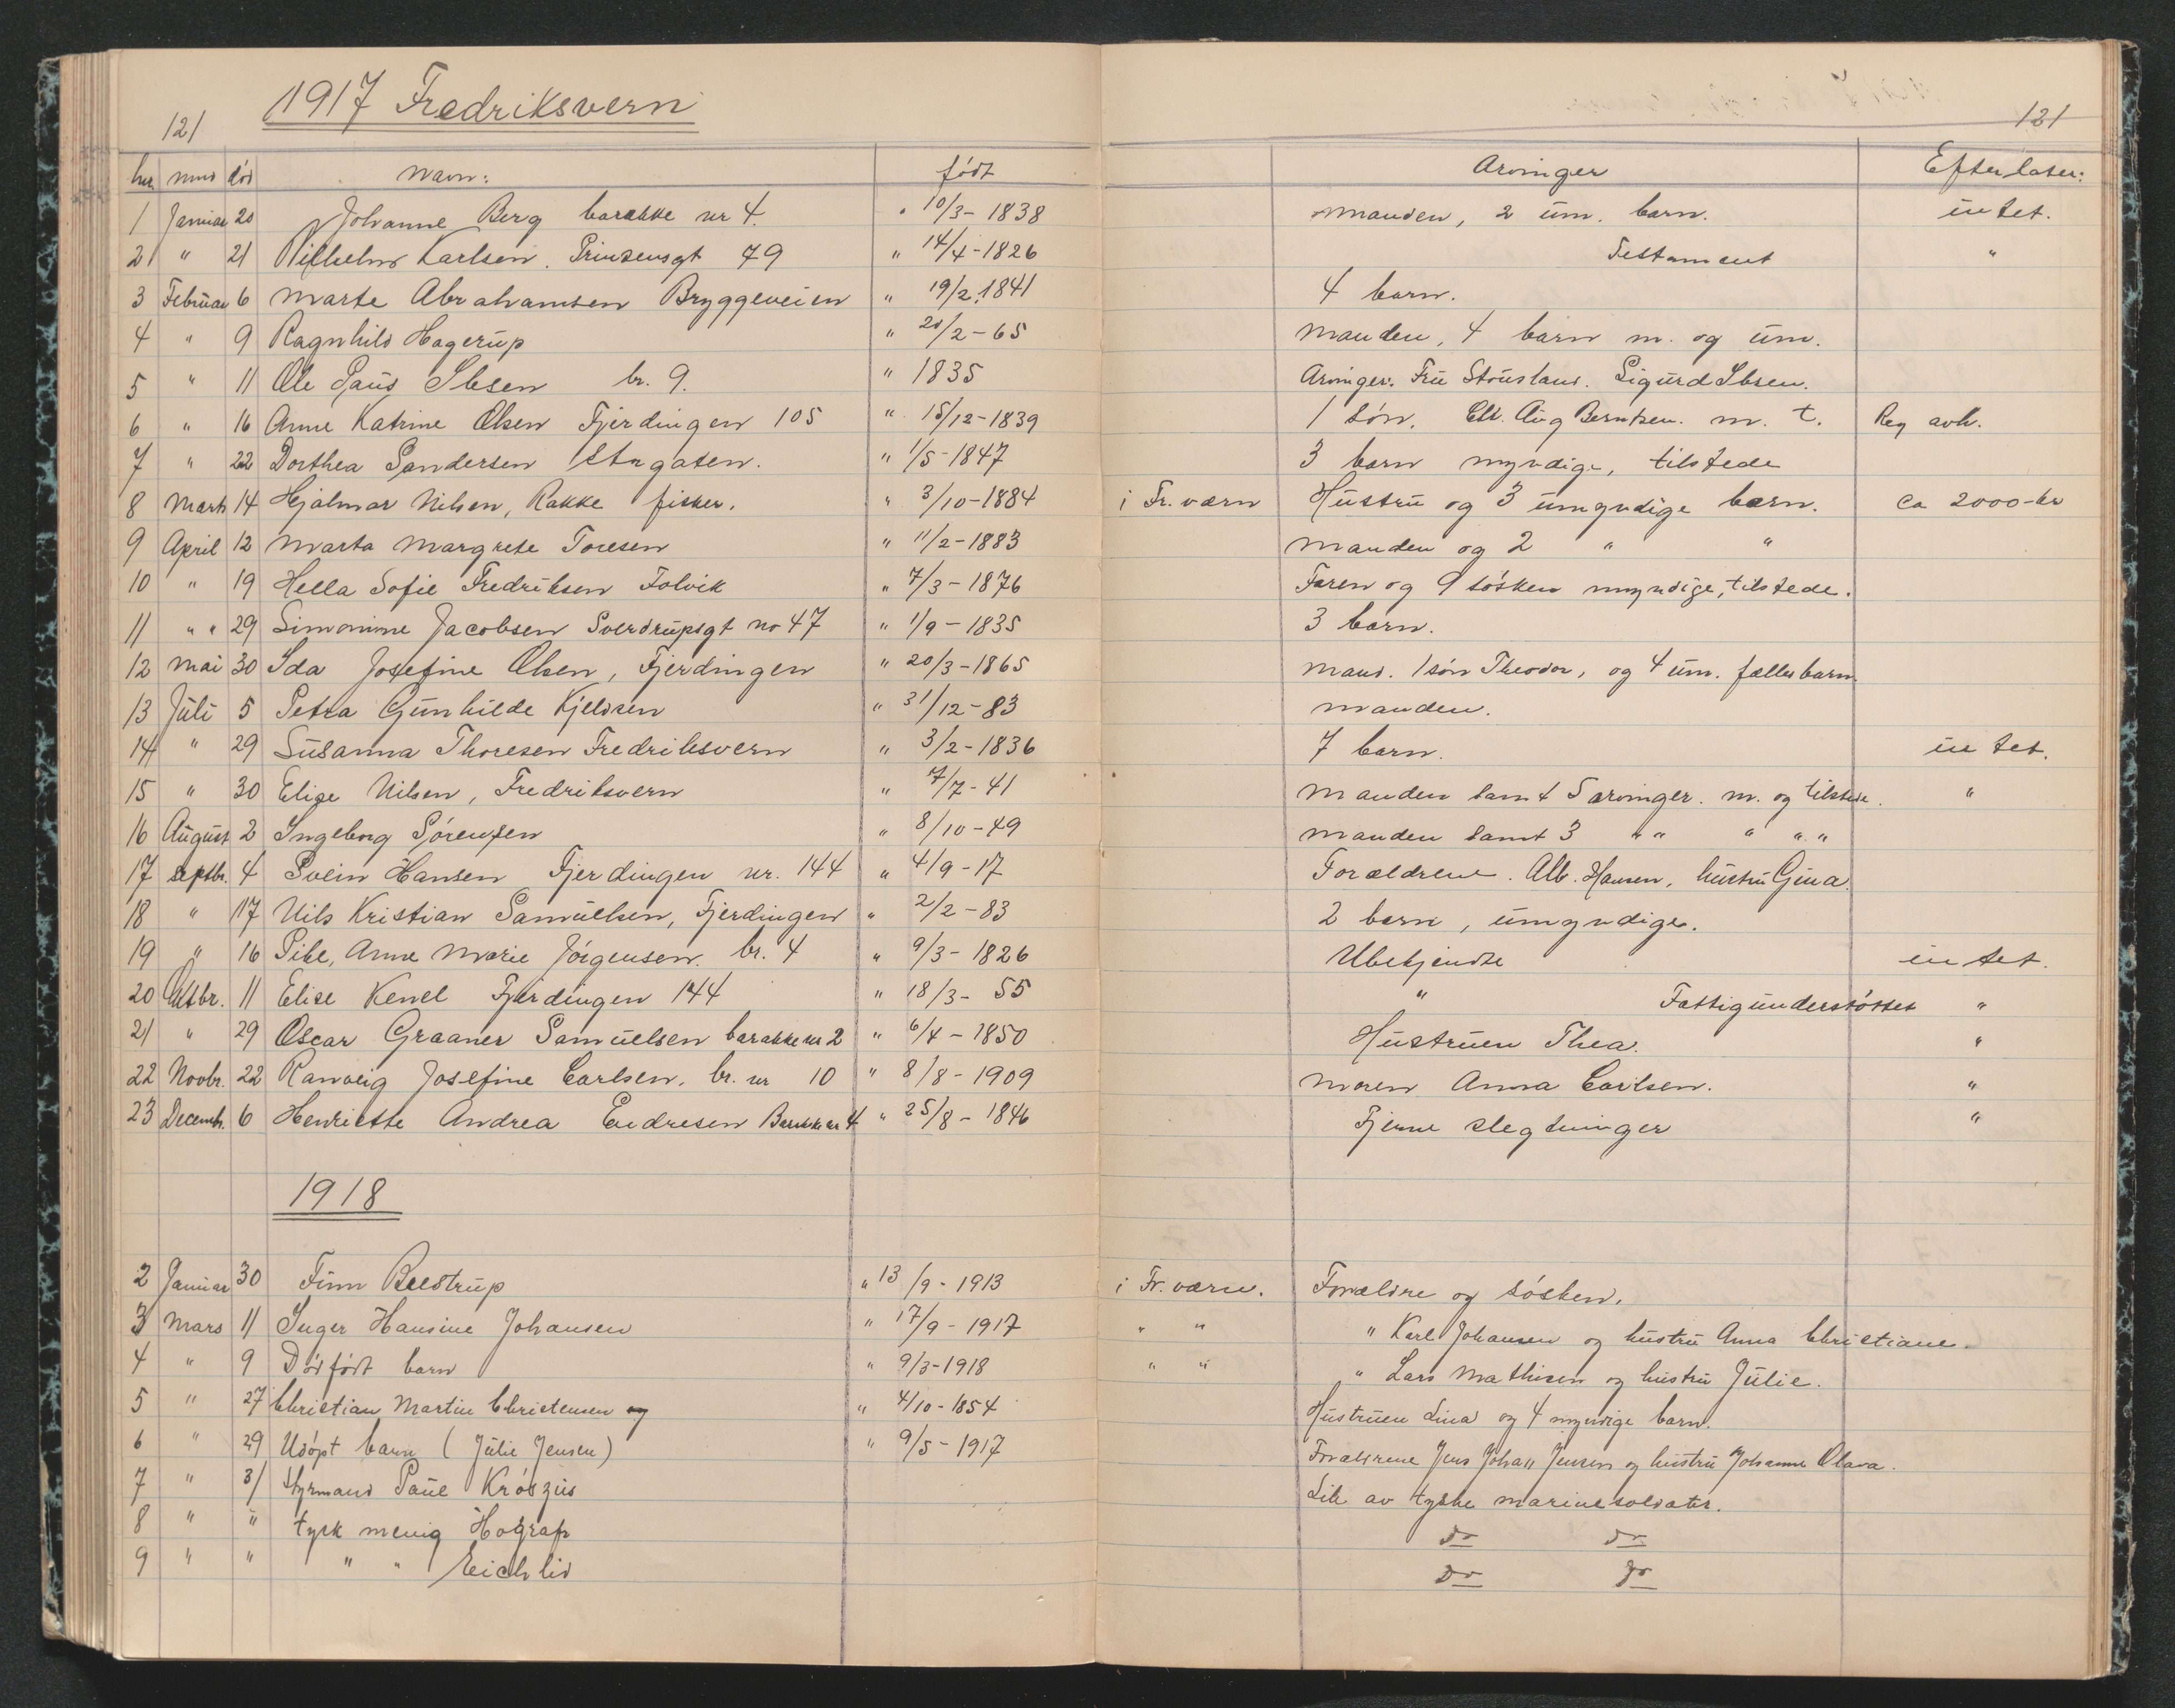 1917 Fredriksvern
121
121
nr. mnd død Navn: født Arvinger Efterlater:
1 Januar 20 Johanne Berg barakke nr 4. " 10/3-1838 manden, 2 um. barn. intet.
2 " 21 Vilhelm Karlsen. Prinsensgt 79 " 14/4-1826 Testament "
3 Februar 6 Marte Abrahamsen Bryggeveien " 19/2 1841 4 barn.
4 " 9 Ragnhild Hagerup " 20/2-65 Manden, 4 barn m. og um.
5 " 11 Ole Paus Ibsen br. 9. " 1835 Arvinger: Fru Stousland. Sigurd Ibsen.
6 " 16 Anne Katrine Olsen Fjerdingen 105 " 15/12-1839 1 søn. Aug Berntsen. m. t. Reg avh.
7 " 22 Dorthea Sandersen Storgaten. " 1/5-1847 3 barn myndige, tilstede
8 Marts 14 Hjalmar Nilsen, Rakke fisker. " 3/10-1884 i Fr. værn Hustru og 3 umyndige barn. ca 2000-kr
9 April 12 Marta Margrete Toresen " 11/2-1883 Manden og 2 " "
10 " 19 Hella Sofie Fredriksen Folvik " 7/3-1876 Faren og 9 søsken myndige, tilstede.
11 " " 29 Simonine Jacobsen Sverdrupsgt no 47 " 1/9-1835 3 barn.
12 Mai 30 Ida Josefine Olsen, Fjerdingen " 20/3-1865 Mand. 1 søn Theodor, og 4 um. fælles barn.
13 Juli 5 Petra Gunhilde Kjeldsen " 31/12-83 Manden.
14 " 29 Susanna Thoresen Fredriksvern " 3/2-1836 7 barn. intet.
15 " 30 Elise Nilsen, Fredriksvern " 7/7-41 Manden samt 5 arvinger. m. og tilstede. "
16 August 2 Ingeborg Sørensen " 8/10-49 Manden samt 3 " " " " "
17 Septbr. 4 Svein Hansen Fjerdingen nr. 144 " 4/9-17 Forældrene. Alb. Hansen, hustru Gina.
18 " 17 Nils Kristian Samuelsen, Fjerdingen " 2/2-83 2 barn, umyndige.
19 " 16 Pike, Anne Marie Jørgensen. br. 4 " 9/3-1826 Ubekjendte intet.
20 Oktbr. 11 Elise Kenel Fjerdingen 144 " 18/3-55 " Fattigunderstøttet "
21 " 29 Oscar Graaner Samuelsen barakke nr 2 " 6/4-1850 Hustruen Thea. "
22 Novbr. 22 Ranveig Josefine Carlsen, br. nr 10 " 8/8-1909 Moren Anna Carlsen. "
23 Decembr. 6 Henriette Andrea Endresen Barakke nr 4 " 25/8-1846 Fjerne slegtninger "
1918
2 Januar 30 Finn " 13/9-1913 i Fr. værn. Forældre og søsken.
3 Mars 11 Inger Hansine Johansen " 17/9-1917 " " " Karl Johansen og hustru Anna Christiane.
4 " 9 Dødfødt barn " 9/3-1918 " " " Lars Mathisen og hustru Julie.
5 " 27 Christian Martin Christensen og " 4/10-1854 Hustruen Lina og 4 myndige barn.
6 " 29 Udøpt barn (Julie Jensen) " 9/5-1917 Forældrene Jens Johan Jensen og hustru Johanne Olava.
7 " 31 Styrmand Paul Krószus Lik av tyske marinesoldater.
8 " " tysk menig Hograf do do
9 " " " " Eichlid do do